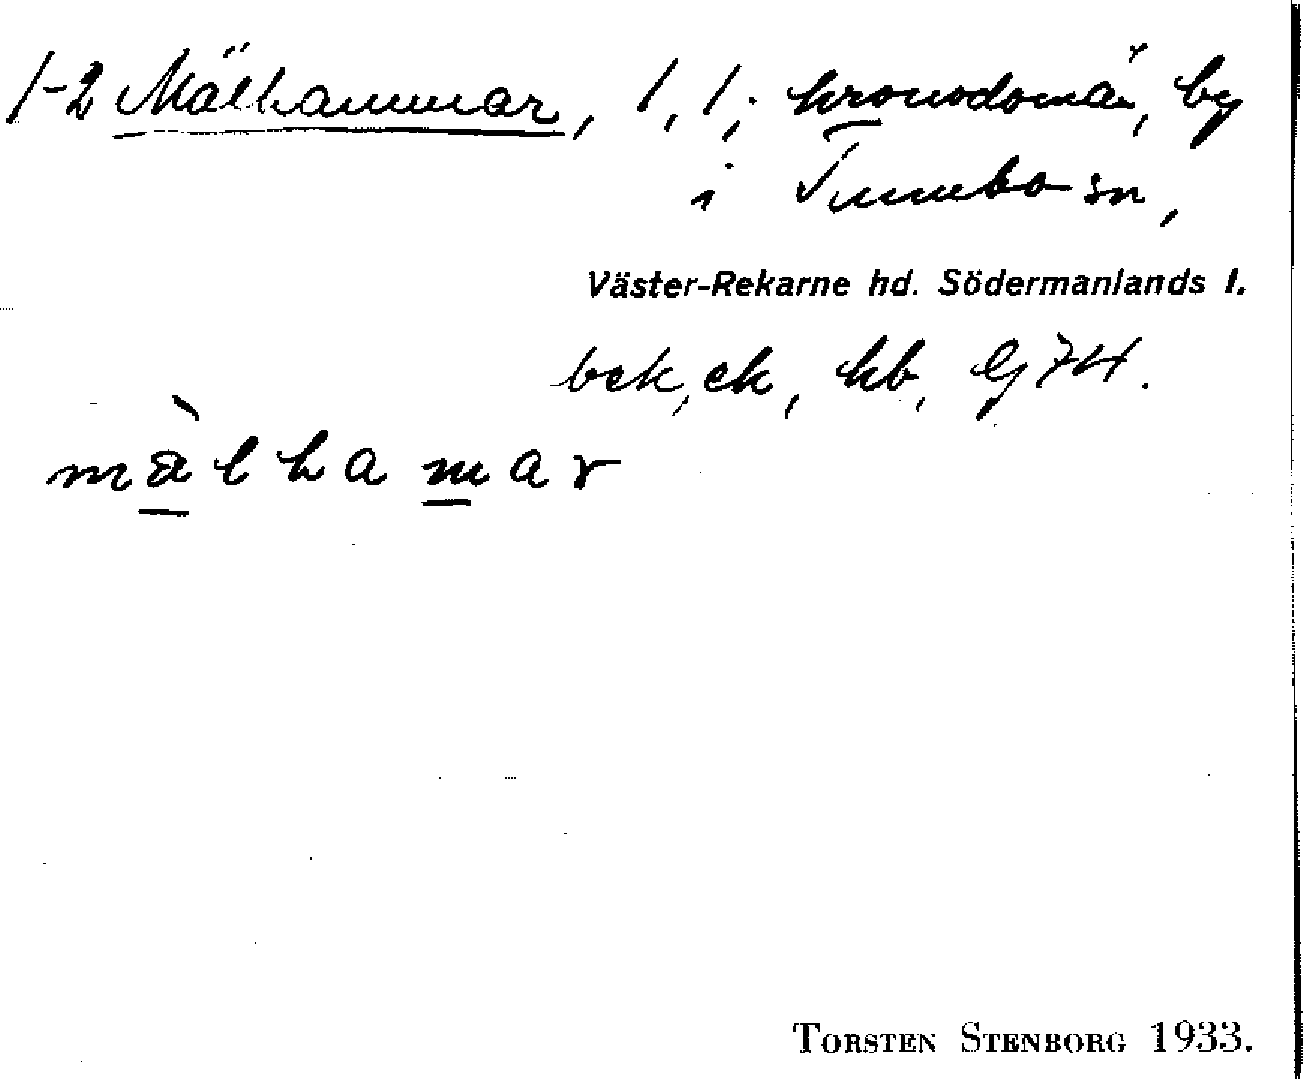 1-2 Mälhammar, 1, 1; kronodomän, by
i Tumbo sn,
Väster-Rekarne hd. Södermanlands l.
bek, ek, kb, Gj 74.
mälhamar
TORSTEN STENBORG 1933.